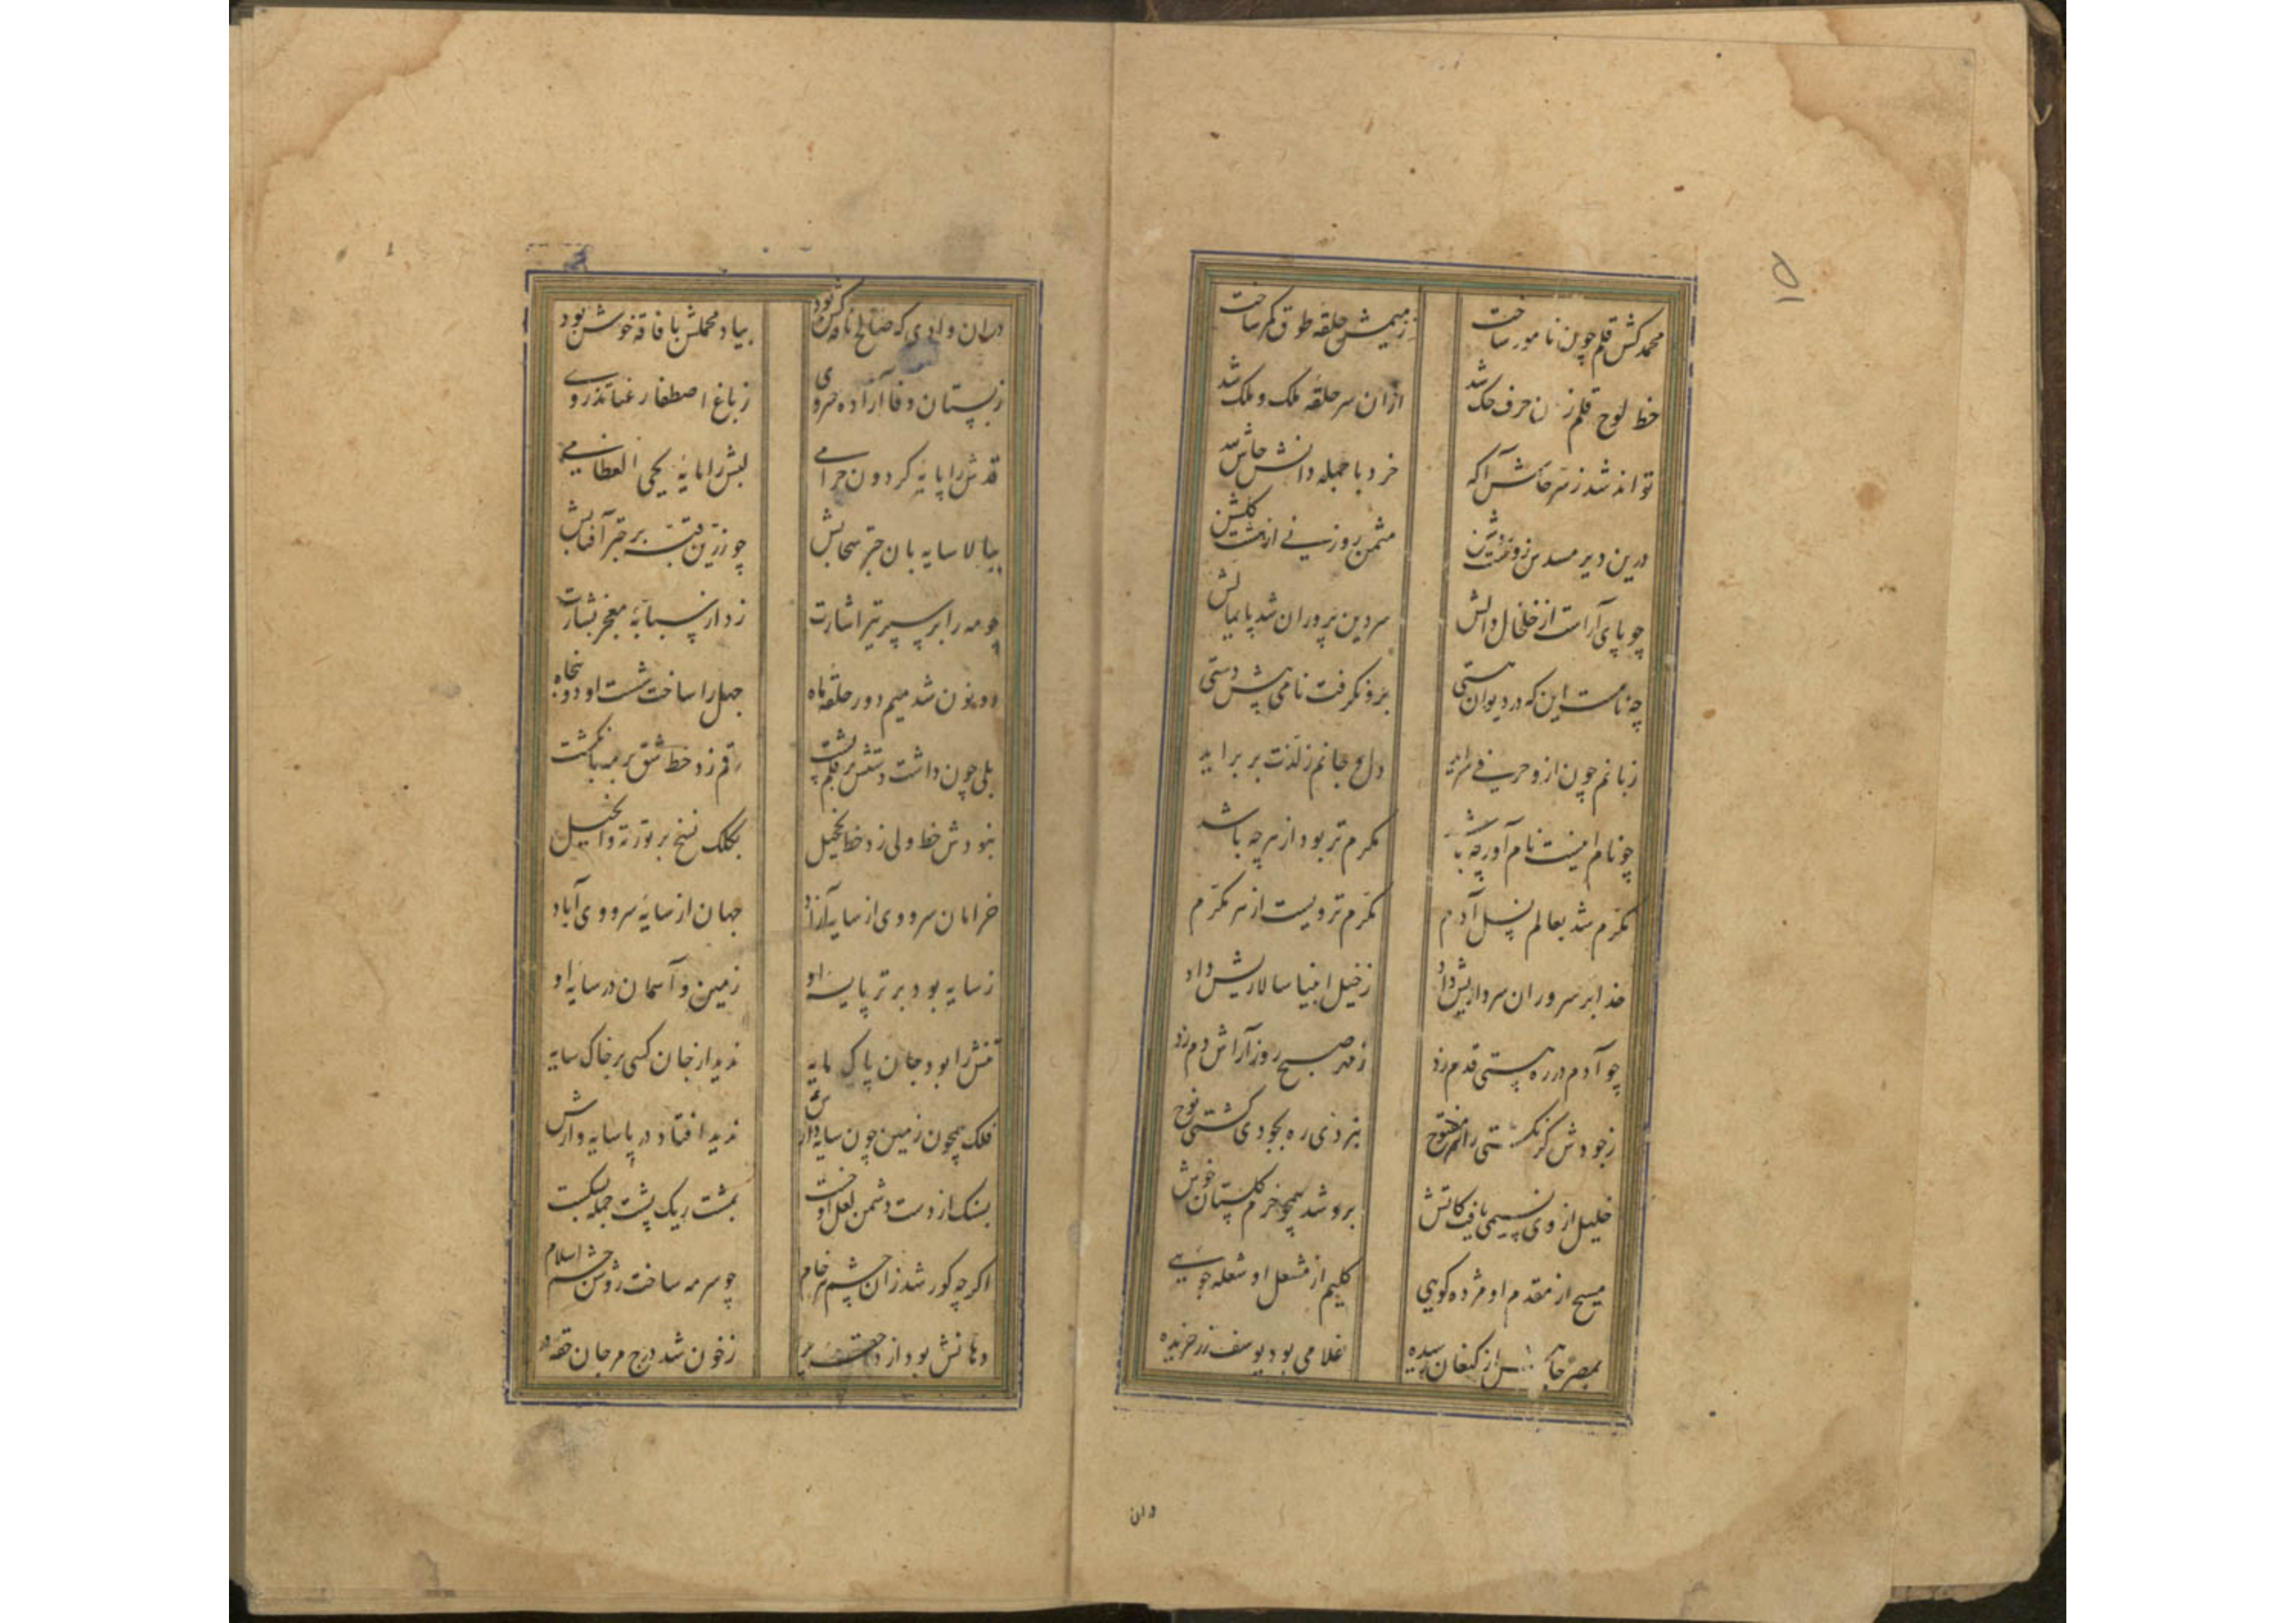 محمد کش قلم چون نامور ساخت ز میمش حلقه طوق کمر ساخت
خط لوح قلم زان حرف حک شد ازان سر حلقه ملک و ملک شد
تواند شد ز سر حاش آگه خرد با جمله دانش حاش لله
درین دیر مسدس زو مثمن روزنی از هشت گلشن
چو پای آراست از خلخال دالش سر دین پروران شد پایمالش
چه نامست این که در دیوان هستی برو نگرفت نامی پیش دستی
زبانم چون ازو حرفی سراید دل و جانم ز لذت بر براید
چو نام اینست نام آور چه باشد مکرم تر بود از هر چه باشد
مکرم شد بعالم نسل آدم مکرم تر ویست از هر مکرم
خدا بر سروران سرداریش داد ز خیل انبیا سالاریش داد
چو آدم در ره هستی قدم زد ز مهر صبح روز آراش دم زد
ز جودش گر نگشتی راه مفتوح نبردی ره بجودی کشتی نوح
خلیل از وی نسیمی یافت کاتش برو شد همچو خرم گلستان خوش
مسیح از مقدم او مژده گویی کلیم از مشعل او شعله جویی
بمصر جاهش از کنعان رسیده غلامی بود یوسف زر خریده
۱۵
دران
دران وادی که صالح ناقه کش بود بیاد محملش با فاقه خوش بود
ز بستان وفا آزاده سروی ز باغ اصطفا رعنا تذروی
قدش را پایه گردون خرامی لبش را مایه یحیی العظامی
ببالا سایه بان چتر سحابش چو زرین قبه بر چتر آفتابش
چو مه را بر سپر تیر اشارت زد از سبابه معجز بشارت
دو نون شد میم دور حلقه ماه چهل را ساخت شست او دو پنجاه
بلی چون داشت دستش بر قلم پشت رقم زد خط شق بر مه بانگشت
نبودش خط ولی زد خط بکلک نسخ بر توریة و انجیل
خرامان سرو وی از سایه آزاد جهان از سایه سرو وی آباد
ز سایه بود برتر پایه او زمین و آسمان در سایه او
تنش را بود جان پاک مایه ندید از جان کسی بر خاک سایه
فلک همچون زمین چون سایه دارش ندید افتاد در پا سایه وارش
بسنگ از دست دشمن لعل او خست بمشت ریگ پشت جمله بشکست
اگر چه کور شد زان چشم هر خام چو سرمه ساخت روشن چشم اسلام
دهانش بود از ز خون شد درج مرجان حقه در